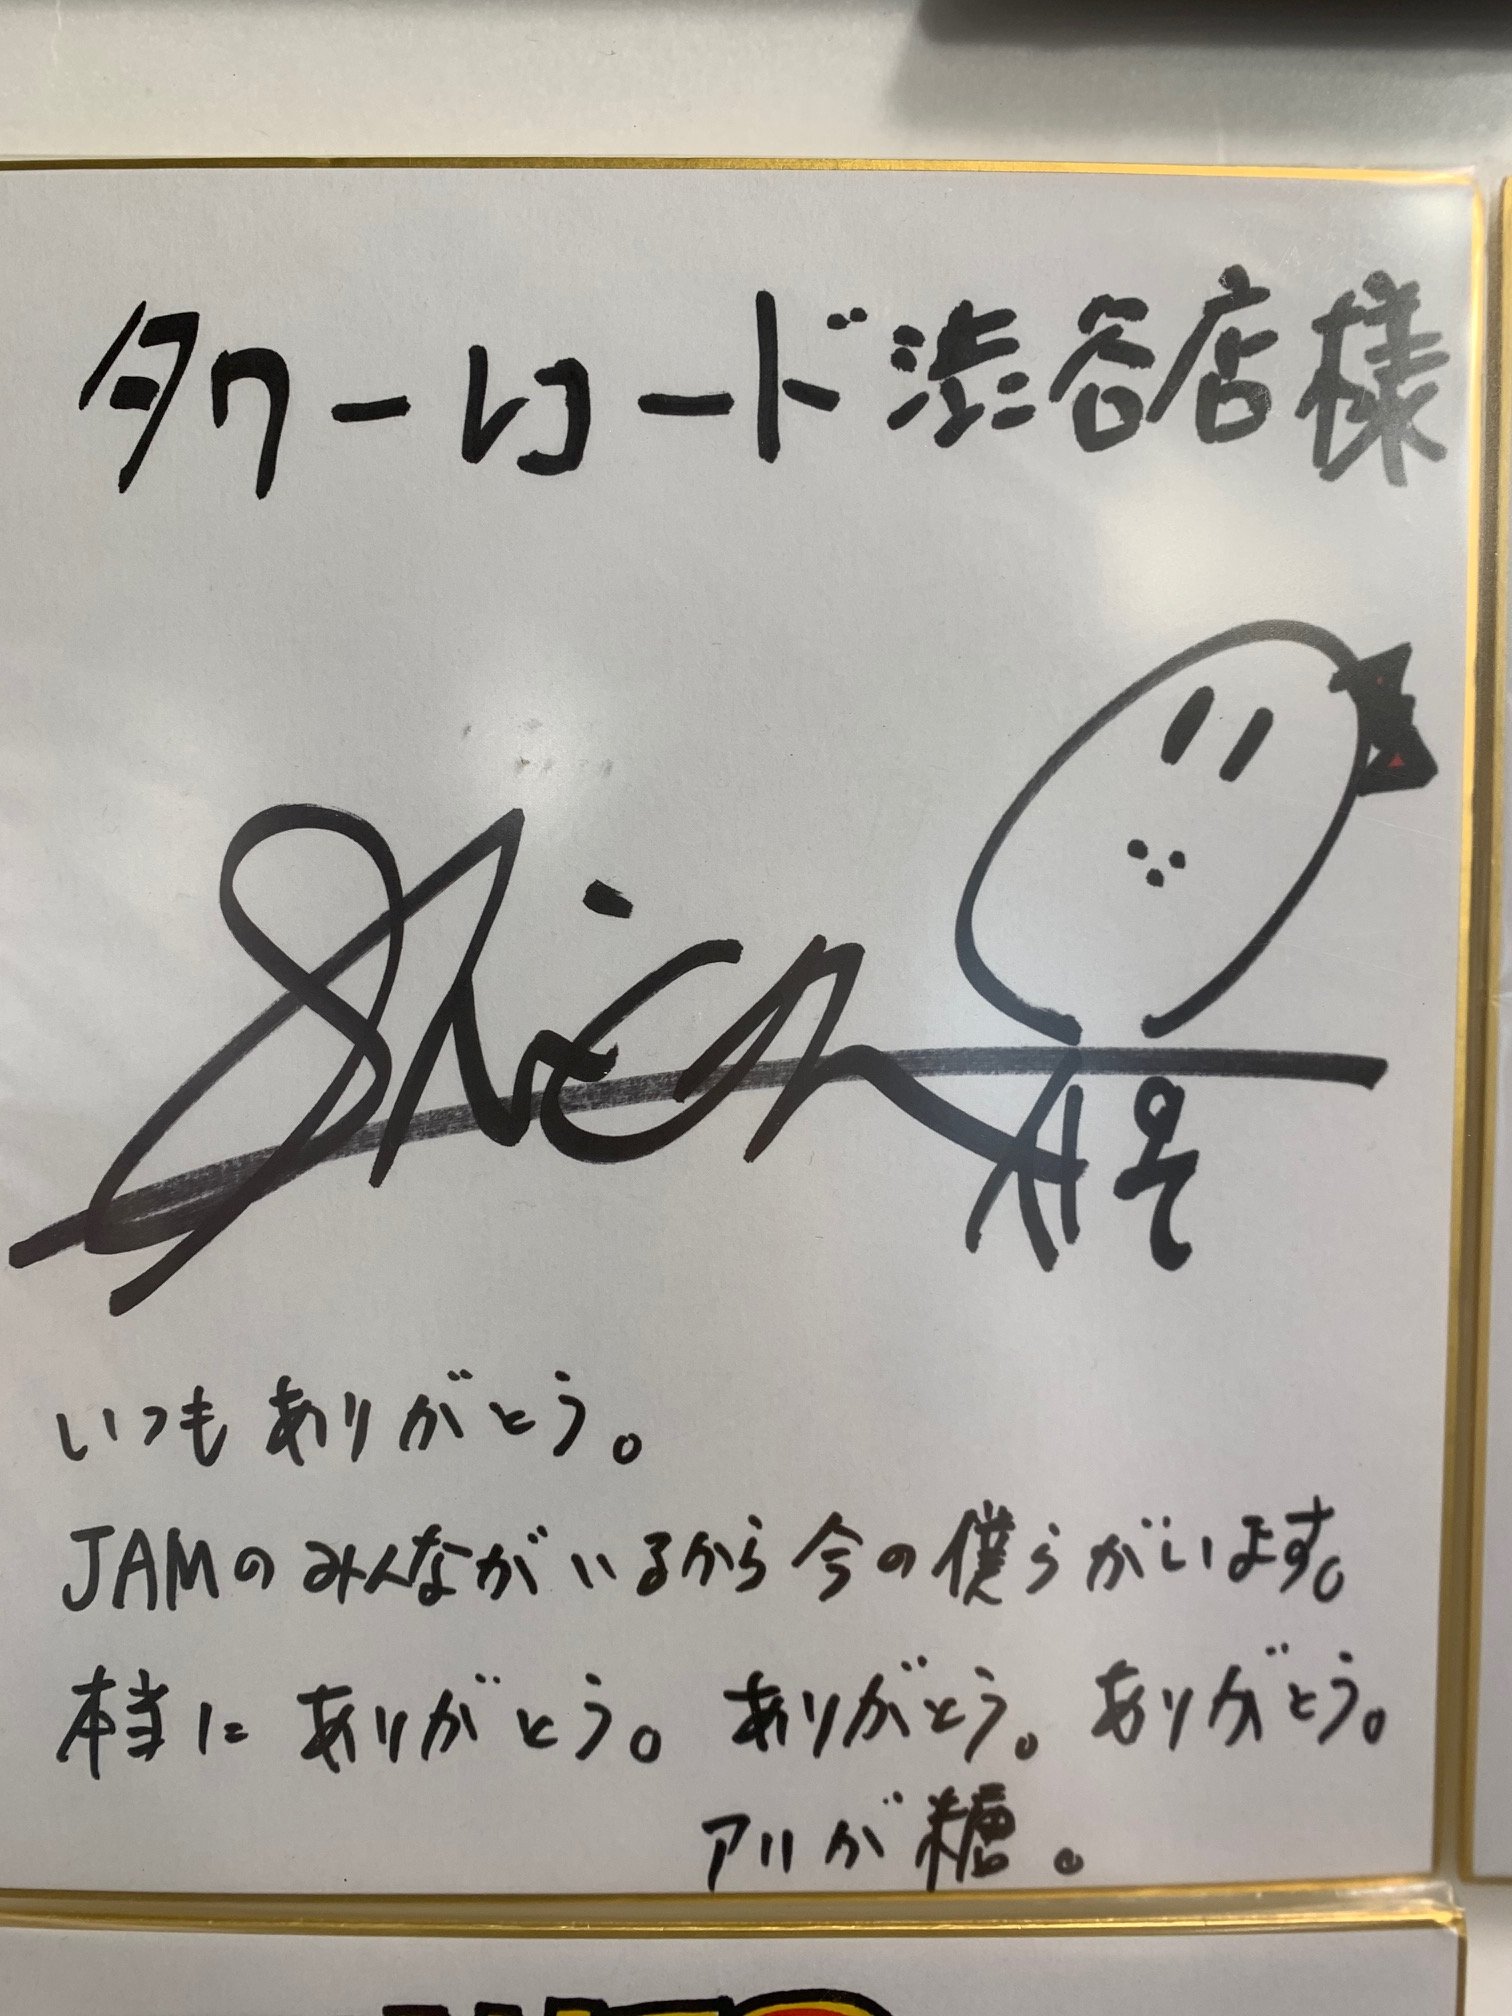 タワーレコード渋谷店様
いつもありがとう。
JAMのみんながいるから今の僕らがいます。
本当にありがとう。ありがとう。ありがとう。
アリが糖。